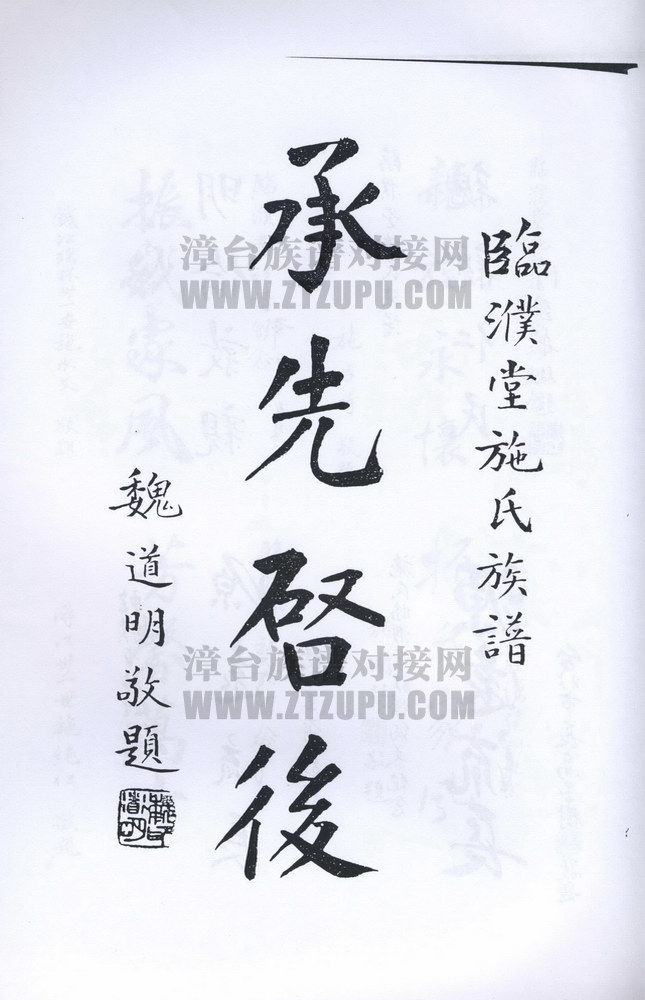 臨濮堂施氏族譜
承先啓後
魏道明敬題
漳台族谱对接网
WWW.ZTZUPU.COM
漳台族谱对接网
WWW.ZTZUPU.COM